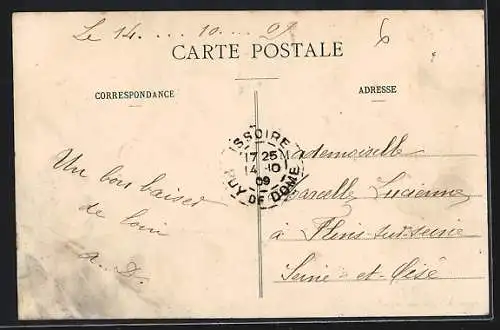 Le 14 .... 10 ... 09
6
CARTE POSTALE
CORRESPONDANCE
ADRESSE
ISSOIRE
17 25
14 -10
09
PUY DE DOME
Mademoiselle
Marcelle Lucienne
à Flins-sur-seine
Seine-et-Oise
Un bon baiser
de loin
a. D.